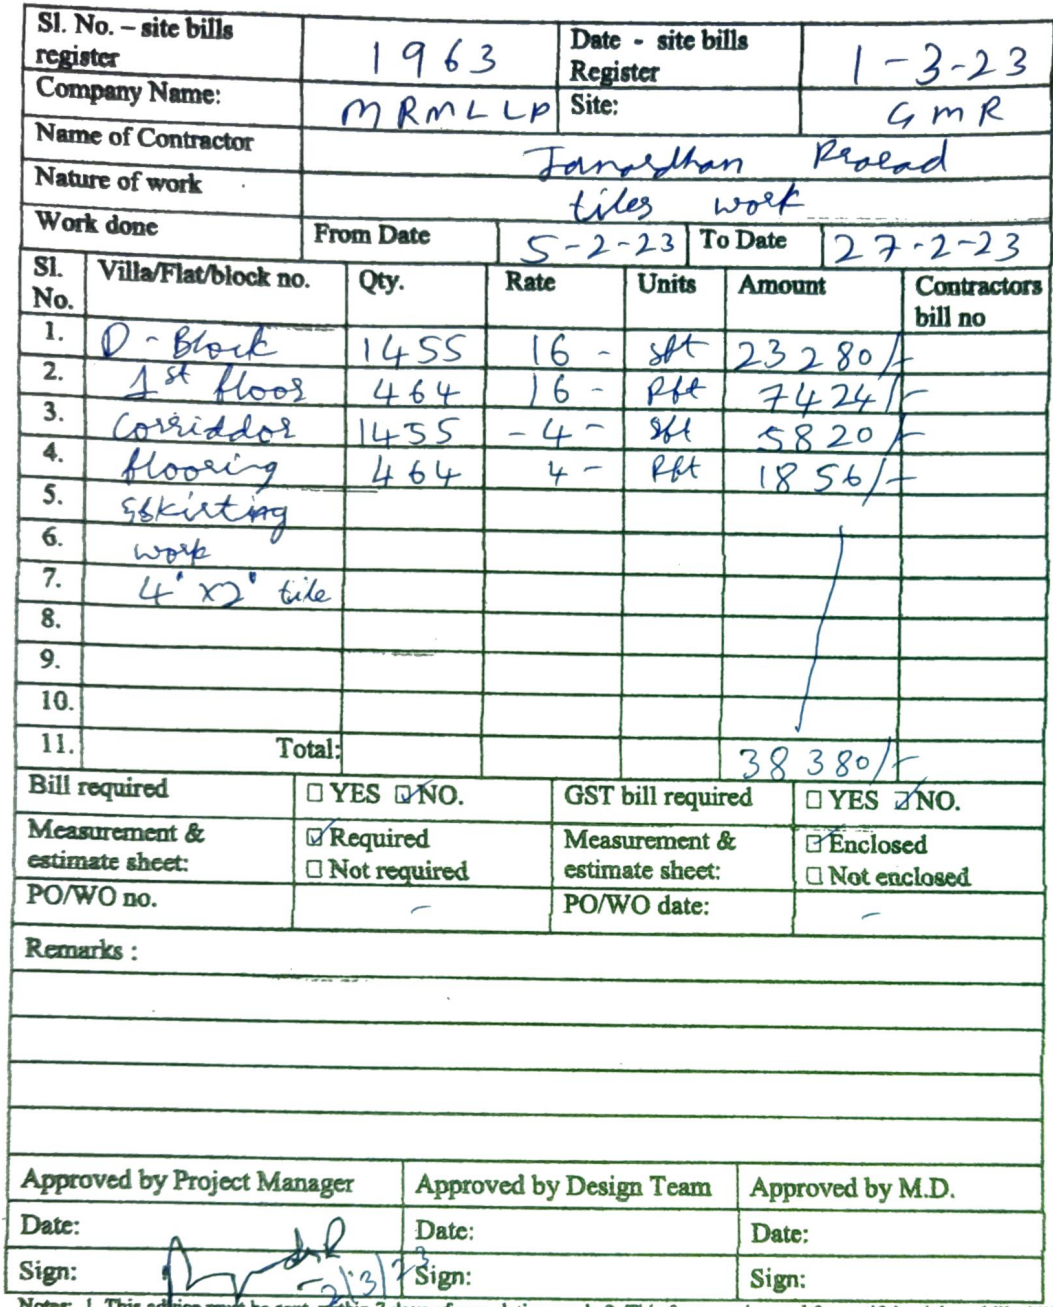 Sl. No. – site bills register 1963 Date - site bills Register 1-3-23
Company Name: MRMLLP Site: GMR
Name of Contractor Janardhan Prasad
Nature of work tiles work
Work done From Date 5-2-23 To Date 27-2-23
Sl. No. Villa/Flat/block no. Qty. Rate Units Amount Contractors bill no
1. D-Block 1455 16 - sft 23280/-
2. 1st floor 464 16 - Rft 7424/-
3. Corriddor 1455 - 4 - sft 5820/-
4. flooring 464 4 - Rft 1856/-
5. skirting
6. work
7. 4' x 2' tile
8.
9.
10.
11. Total: 38380/-
Bill required □ YES ☑ NO. GST bill required □ YES ☑ NO.
Measurement & estimate sheet: ☑ Required □ Not required Measurement & estimate sheet: ☑ Enclosed □ Not enclosed
PO/WO no. - PO/WO date: -
Remarks :
Approved by Project Manager Approved by Design Team Approved by M.D.
Date: Date: Date:
Sign: 2/3/23 Sign: Sign: